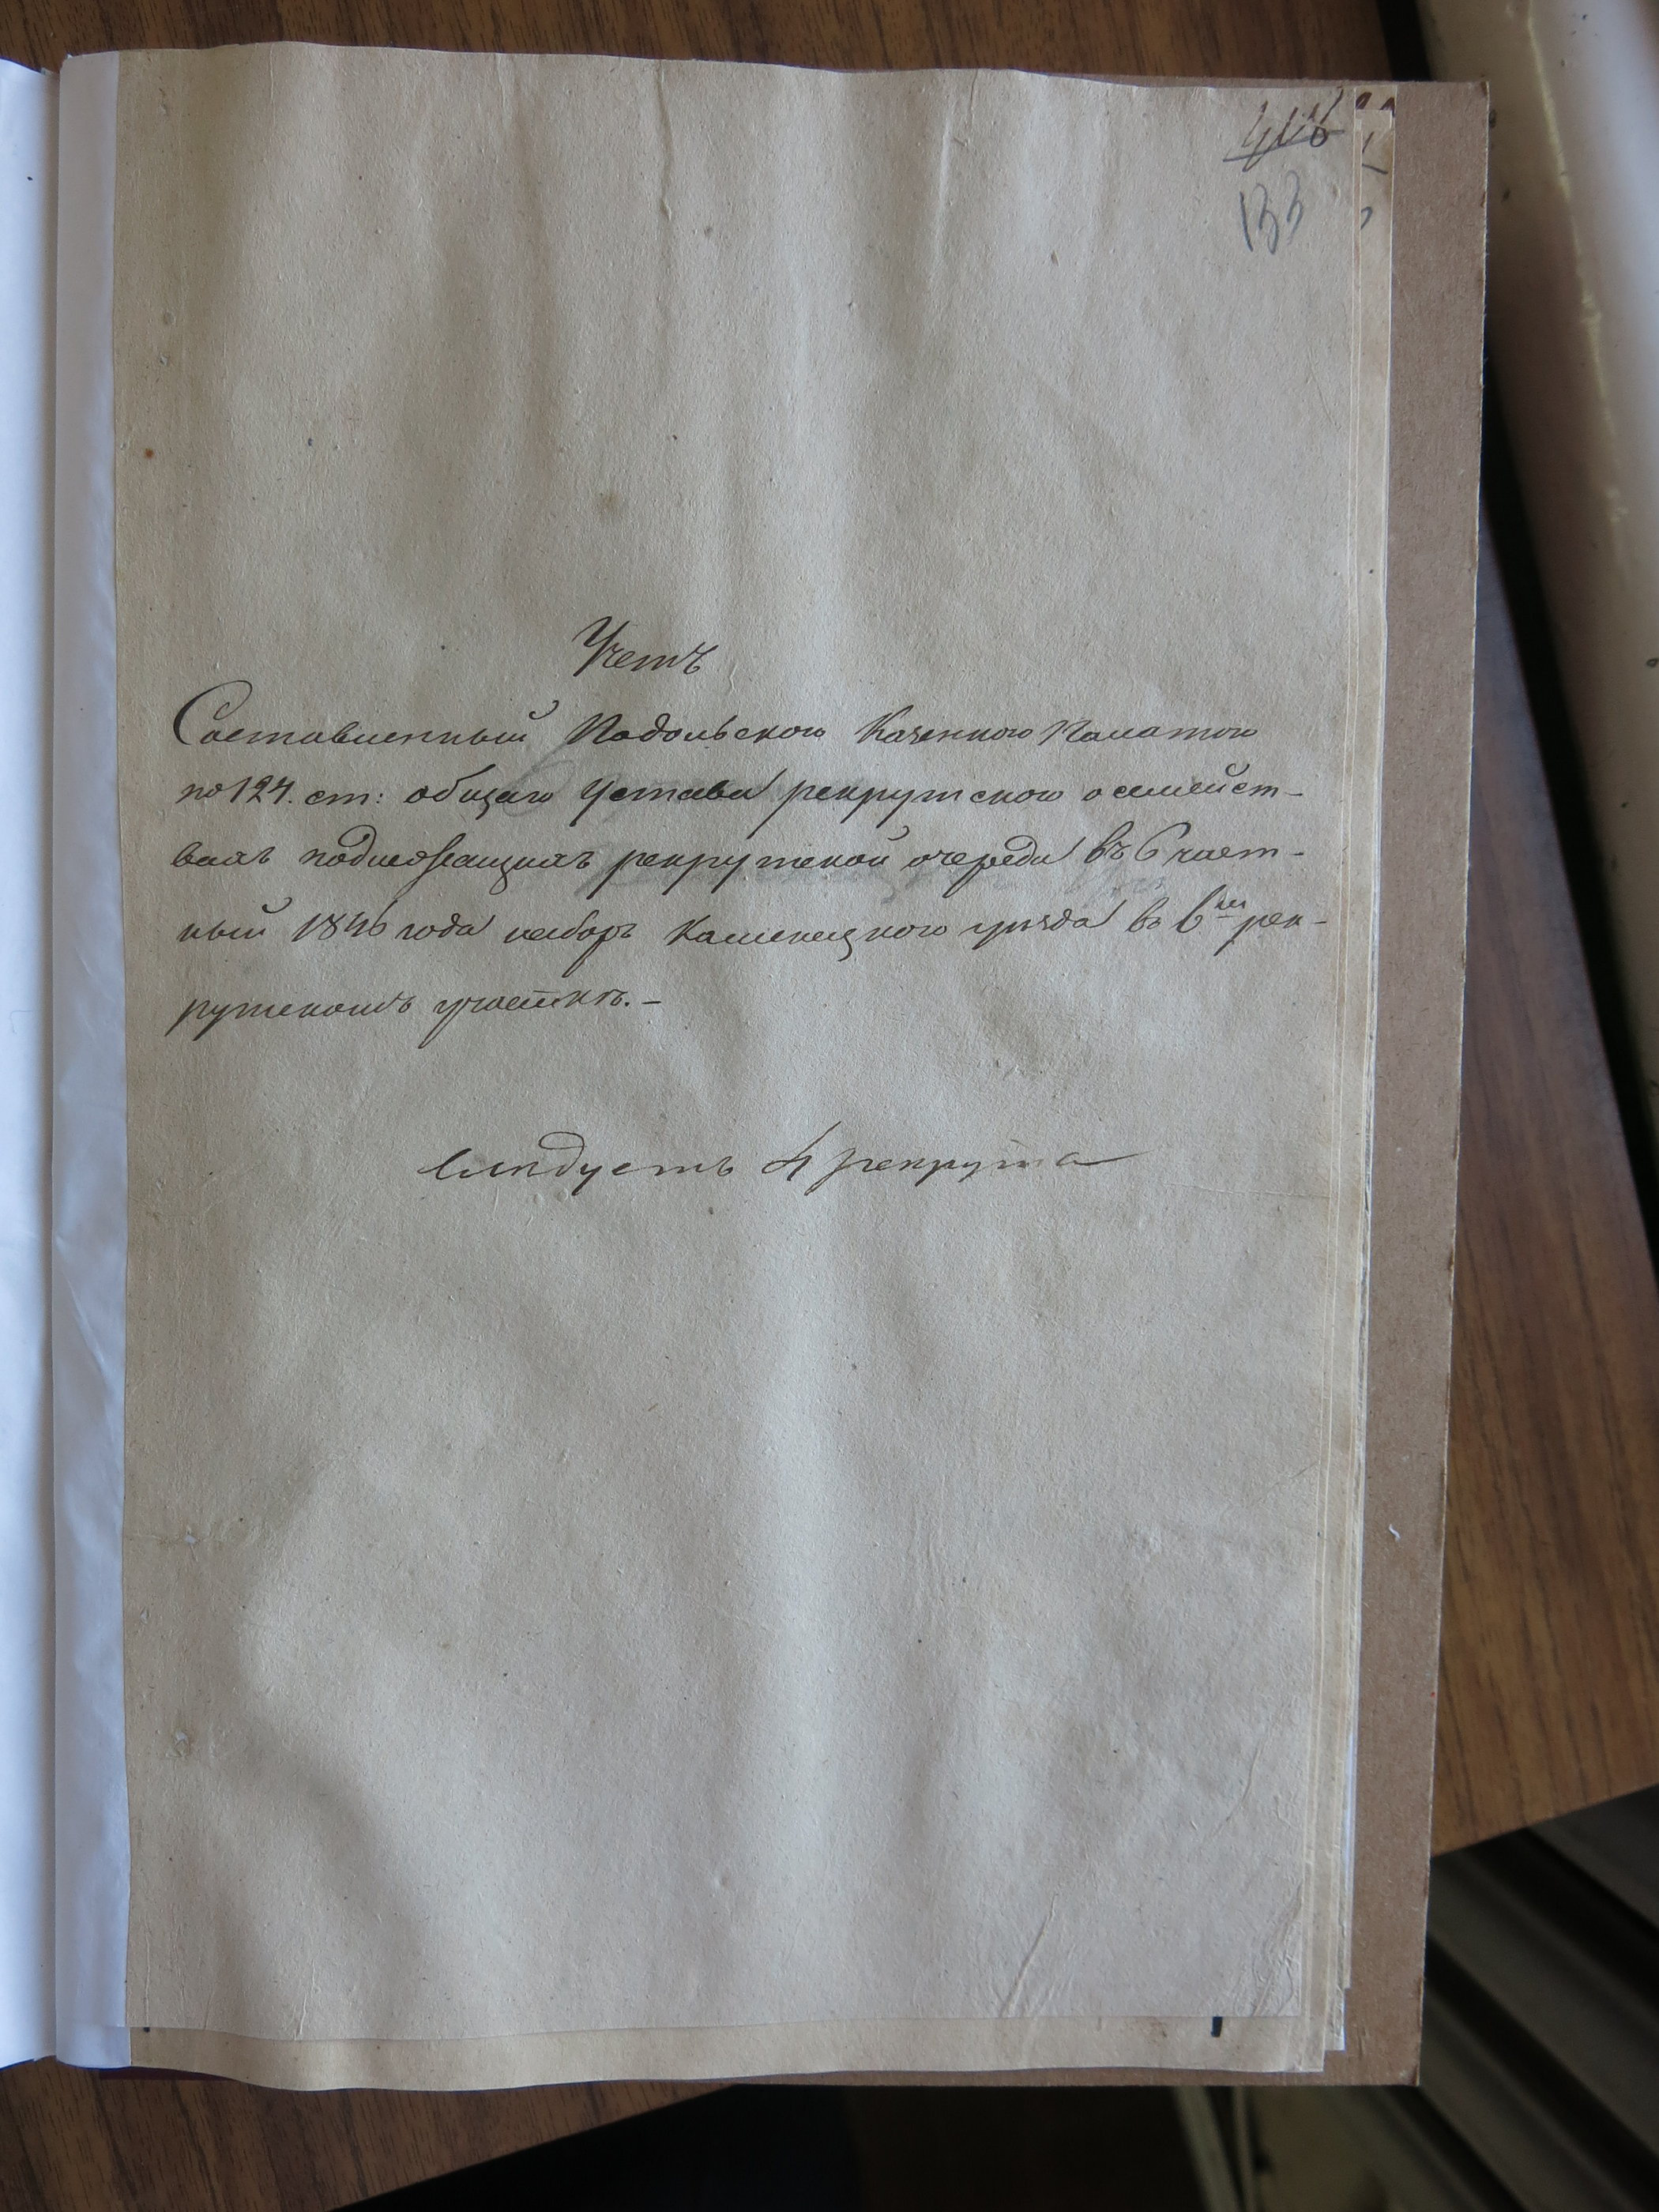 133
Учетъ
Составленный Подольскою Казенною Палатою
по 124. ст: общаго Устава рекрутскаго о семейст-
вахъ подлежащихъ рекрутской очереди въ 6 част-
ный 1846 года наборъ Каменецкаго уѣзда въ 6мъ рек-
рутскомъ участкѣ.-
Слѣдуетъ 4 рекрута